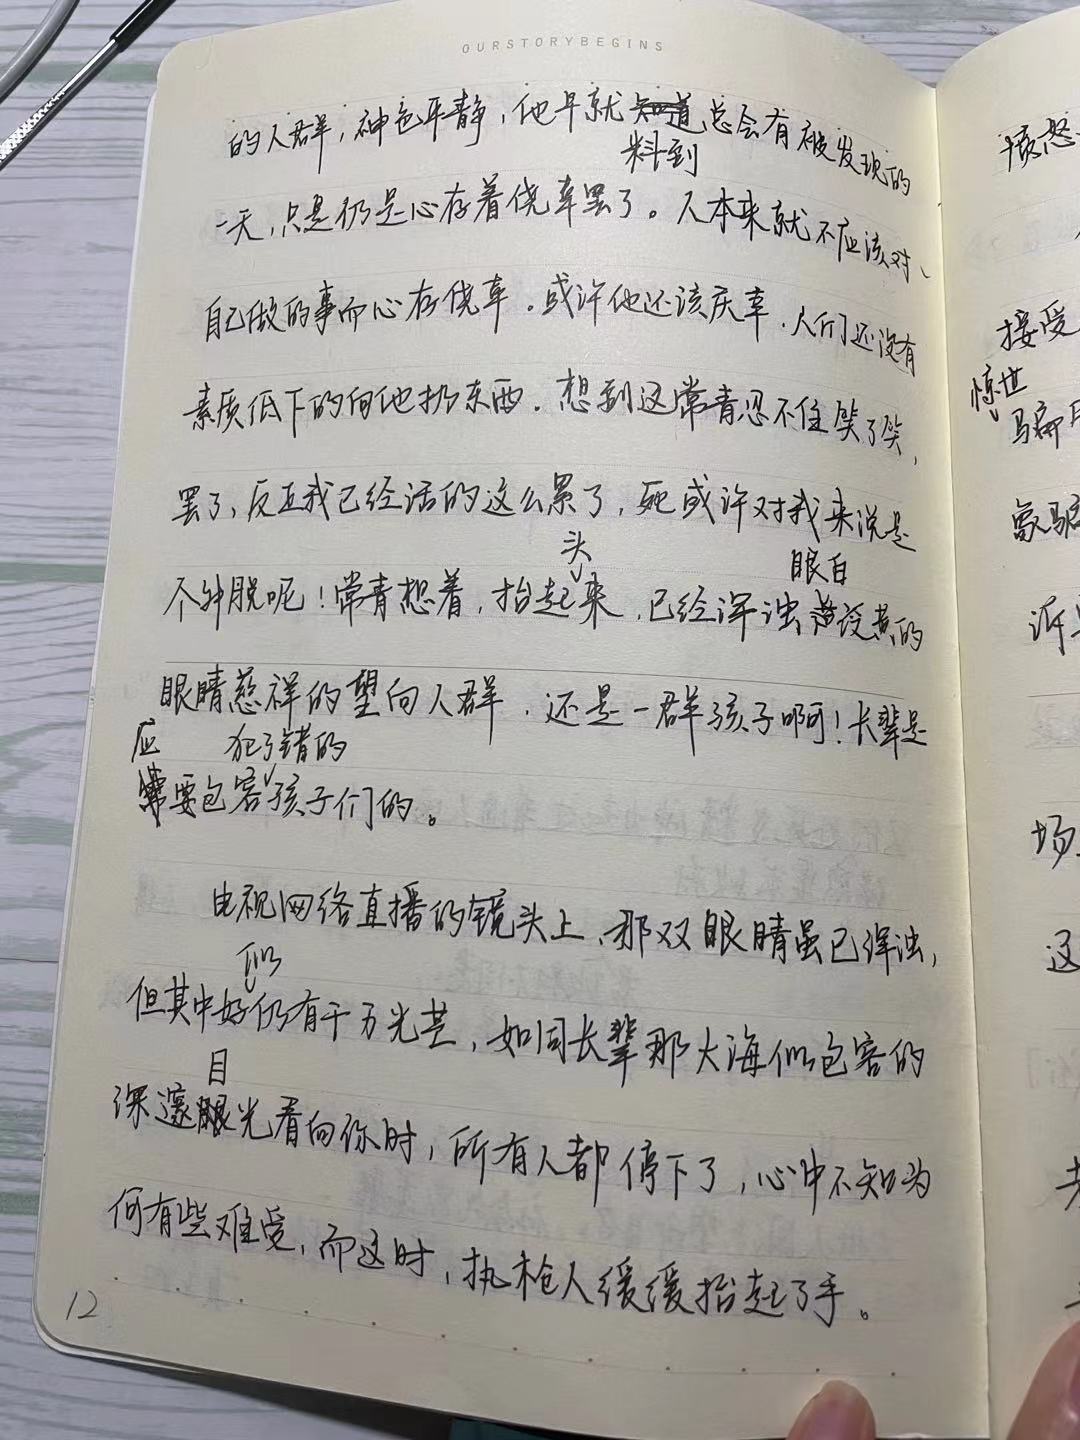 OURSTORYBEGINS
的人群，神色平静，他早就知道总会有被发现的
料到
一天，只是仍是心存着侥幸罢了。人本来就不应该对
自己做的事而心存侥幸。或许他还该庆幸，人们还没有
素质低下的向他扔东西。想到这常青忍不住笑了笑，
罢了，反正我已经活的这么累了，死或许对我来说是
头
眼白
个解脱呢！常青想着，抬起来，已经浑浊设黄的
眼睛慈祥的望向人群，还是一群孩子啊！长辈是
应
犯了错的
常要包容孩子们的。
电视网络直播的镜头上，那双眼睛虽已浑浊，
似
但其中好仍有千万光芒，如同长辈那大海似包容的
目
深邃眼光看向你时，所有人都停下了，心中不知为
何有些难受，而这时，执枪人缓缓抬起了手。
12
接受
惊世
骗
诉
场
这